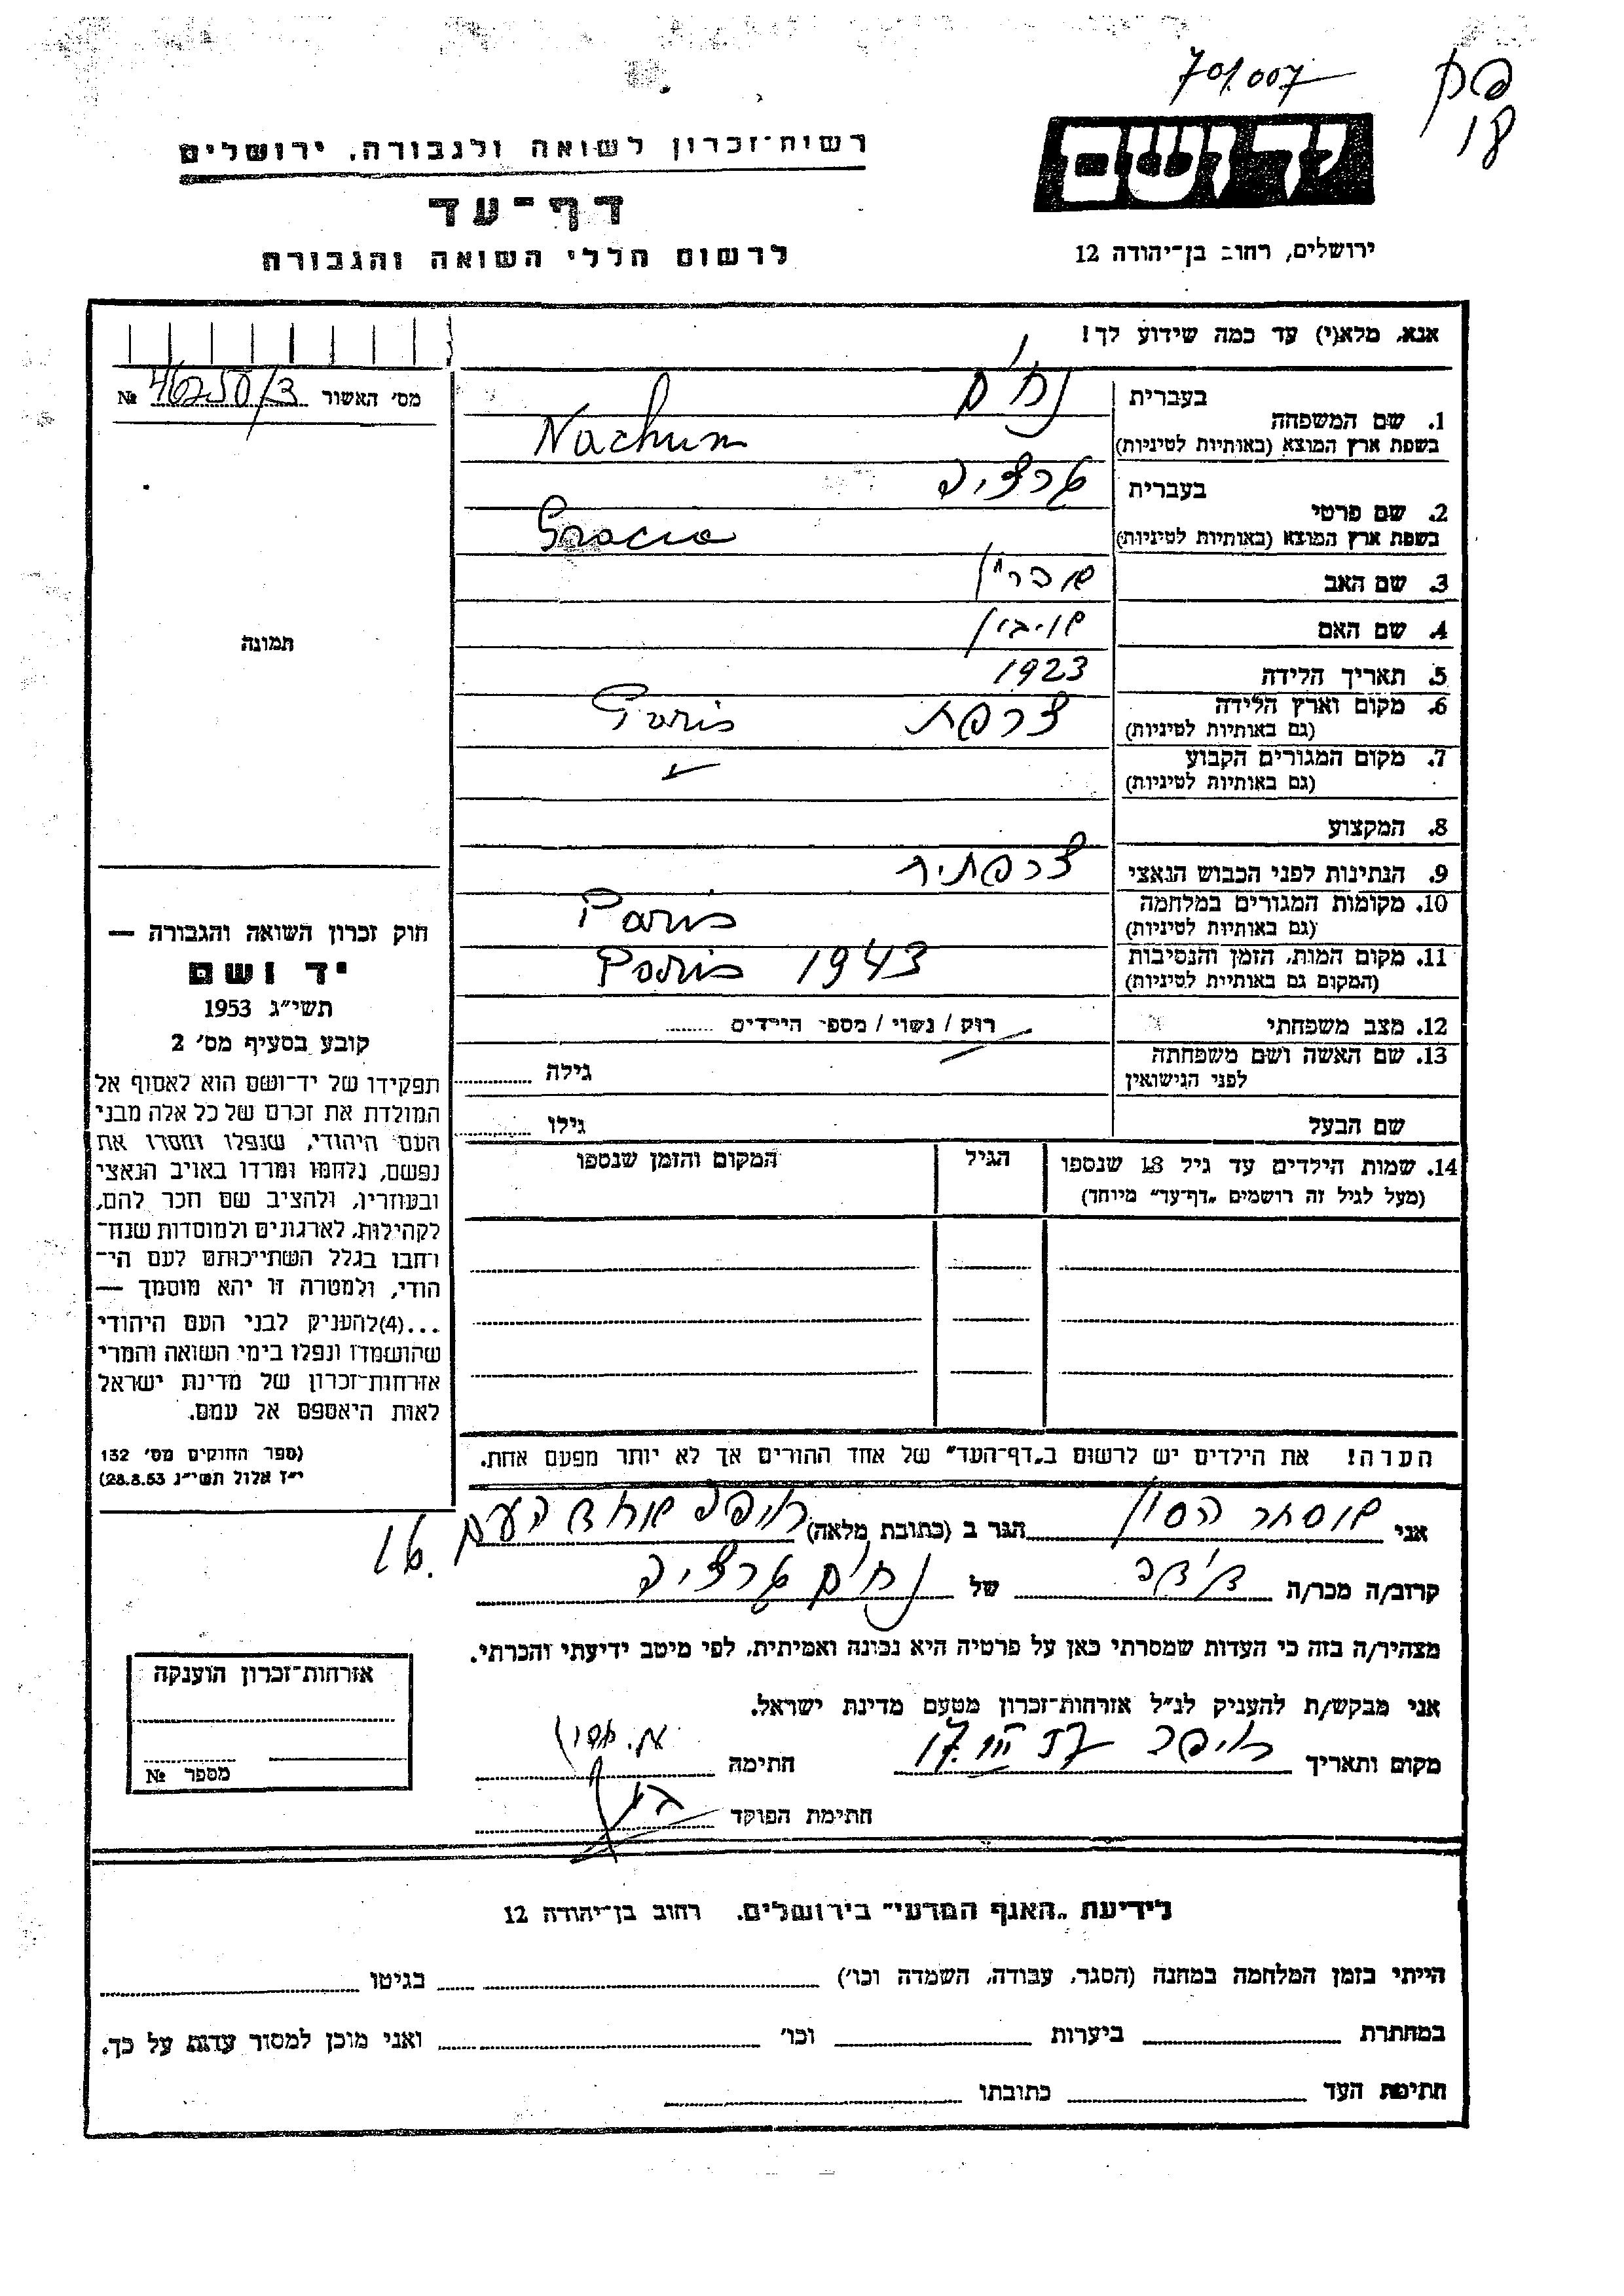 701.007
יד ושם
ירושלים, רחוב בן־יהודה 12
רשות־זכרון לשואה ולגבורה, ירושלים
דף־עד
לרשום חללי השואה והגבורה
אנא, מלא(י) עד כמה שידוע לך!
מס׳ האשור № 46250/3
1. שם המשפחה
בעברית נחום
בשפת ארץ המוצא (באותיות לטיניות) Nachum
2. שם פרטי
בעברית גרציה
בשפת ארץ המוצא (באותיות לטיניות) Gracia
3. שם האב
4. שם האם
5. תאריך הלידה 1923
6. מקום וארץ הלידה צרפת Paris
(גם באותיות לטיניות)
7. מקום המגורים הקבוע
(גם באותיות לטיניות)
8. המקצוע
9. הנתינות לפני הכבוש הנאצי צרפתיה
10. מקומות המגורים במלחמה Paris
(גם באותיות לטיניות)
11. מקום המות, הזמן והנסיבות Paris 1943
(המקום גם באותיות לטיניות)
12. מצב משפחתי רוק / נשוי / מספר הילדים
13. שם האשה ושם משפחתה גילה
לפני הנישואין
שם הבעל גילו
14. שמות הילדים עד גיל 18 שנספו
(מעל לגיל זה רושמים „דף־עד״ מיוחד)
הגיל
המקום והזמן שנספו
הערה! את הילדים יש לרשום ב„דף־העד״ של אחד ההורים אך לא יותר מפעם אחת.
תמונה
חוק זכרון השואה והגבורה —
יד ושם
תשי״ג 1953
קובע בסעיף מס׳ 2
תפקידו של יד־ושם הוא לאסוף אל
המולדת את זכרם של כל אלה מבני
העם היהודי, שנפלו ומסרו את
נפשם, נלחמו ומרדו באויב הנאצי
ובעוזריו, ולהציב שם וזכר להם,
לקהילות, לארגונים ולמוסדות שנח־
רבו בגלל השתייכותם לעם הי־
הודי, ולמטרה זו יהא מוסמך —
...(4)להעניק לבני העם היהודי
שהושמדו ונפלו בימי השואה והמרי
אזרחות־זכרון של מדינת ישראל
לאות היאספם אל עמם.
(ספר החוקים מס׳ 132
י״ז אלול תשי״ג 28.8.53)
אני אסתר חסון הגר ב (כתובת מלאה) חיפה אחד העם 16.
קרוב/ה מכר/ה דודה של נחום גרציה
מצהיר/ה בזה כי העדות שמסרתי כאן על פרטיה היא נכונה ואמיתית, לפי מיטב ידיעתי והכרתי.
אני מבקש/ת להעניק לנ״ל אזרחות־זכרון מטעם מדינת ישראל.
מקום ותאריך חיפה 17. חתימה א. חסון
חתימת הפוקד
אזרחות־זכרון הוענקה
מספר №
לידיעת „האגף המדעי״ בירושלים, רחוב בן־יהודה 12
הייתי בזמן המלחמה במחנה (הסגר, עבודה, השמדה וכו׳) בגיטו
במחתרת ביערות וכו׳ ואני מוכן למסור עדות על כך.
חתימת העד כתובתו